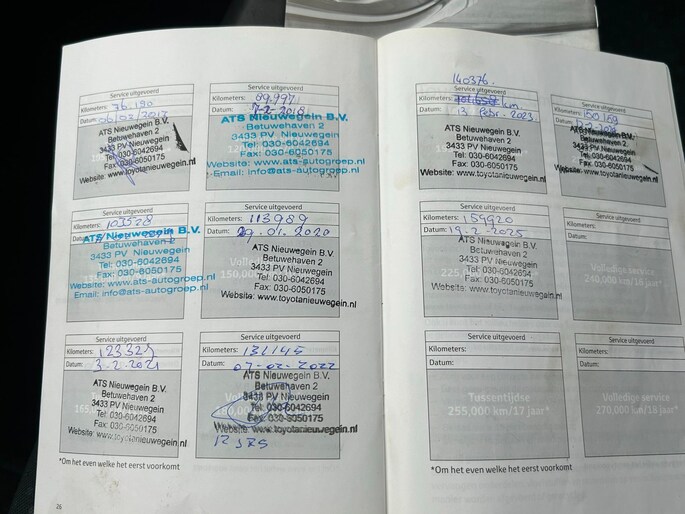 Service uitgevoerd
Kilometers: 76.190
Datum: 06/02/2017
ATS Nieuwegein B.V.
Betuwehaven 2
3433 PV Nieuwegein
Tel: 030-6042694
Fax: 030-6050175
Website: www.toyotanieuwegein.nl
Service uitgevoerd
Kilometers: 89.997
Datum: 7-2-2018
ATS Nieuwegein B.V.
Betuwehaven 2
3433 PV Nieuwegein
Tel: 030-6042694
Fax: 030-6050175
Website: www.ats-autogroep.nl
Email: info@ats-autogroep.nl
Service uitgevoerd
Kilometers: 103528
Datum:
ATS Nieuwegein B.V.
Betuwehaven 2
3433 PV Nieuwegein
Tel: 030-6042694
Fax: 030-6050175
Website: www.ats-autogroep.nl
Email: info@ats-autogroep.nl
Service uitgevoerd
Kilometers: 113989
Datum: 29.01.2020
ATS Nieuwegein B.V.
Betuwehaven 2
3433 PV Nieuwegein
Tel: 030-6042694
Fax: 030-6050175
Website: www.toyotanieuwegein.nl
150,000
Service uitgevoerd
Kilometers: 123329
Datum: 3-2-2021
ATS Nieuwegein B.V.
Betuwehaven 2
3433 PV Nieuwegein
Tel: 030-6042694
Fax: 030-6050175
Website: www.toyotanieuwegein.nl
Service uitgevoerd
Kilometers: 132145
Datum: 07-02-2022
ATS Nieuwegein B.V.
Betuwehaven 2
3433 PV Nieuwegein
Tel: 030-6042694
Fax: 030-6050175
Website: www.toyotanieuwegein.nl
12 JRS
*Om het even welke het eerst voorkomt
26
140376
Service uitgevoerd
Kilometers: km
Datum: 13 Febr. 2023
ATS Nieuwegein B.V.
Betuwehaven 2
3433 PV Nieuwegein
Tel: 030-6042694
Fax: 030-6050175
Website: www.toyotanieuwegein.nl
Service uitgevoerd
Kilometers: 150169
Datum:
ATS Nieuwegein B.V.
Betuwehaven 2
3433 PV Nieuwegein
Tel: 030-6042694
Fax: 030-6050175
Website: www.toyotanieuwegein.nl
Service uitgevoerd
Kilometers: 159920
Datum: 19.2-2025
ATS Nieuwegein B.V.
Betuwehaven 2
3433 PV Nieuwegein
Tel: 030-6042694
Fax: 030-6050175
Website: www.toyotanieuwegein.nl
Service uitgevoerd
Kilometers:
Datum:
Volledige service
240,000 km/16 jaar*
Service uitgevoerd
Kilometers:
Datum:
Tussentijdse
255,000 km/17 jaar*
Service uitgevoerd
Kilometers:
Datum:
Volledige service
270,000 km/18 jaar*
*Om het even welke het eerst voorkomt